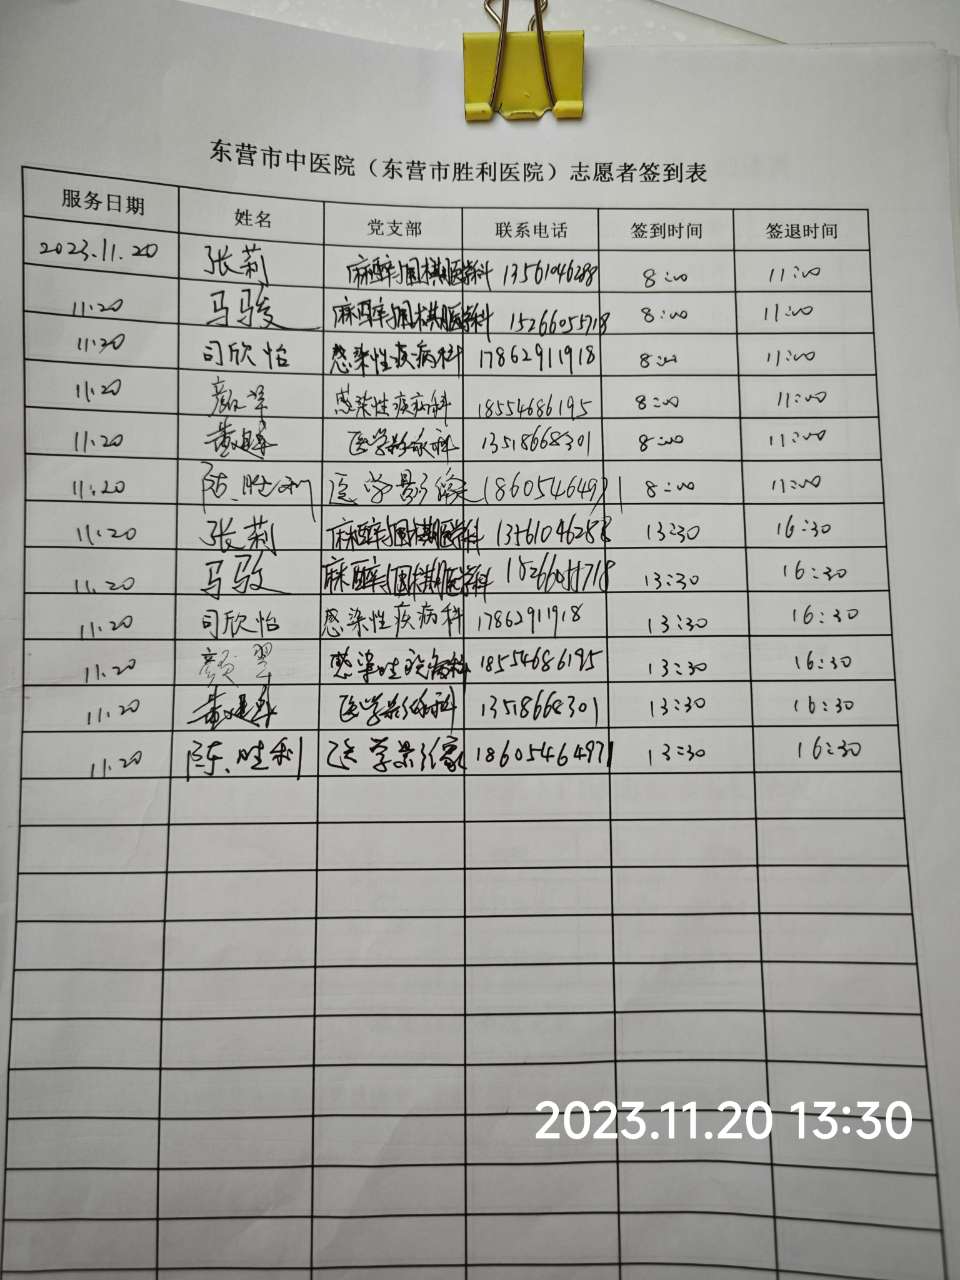 东营市中医院（东营市胜利医院）志愿者签到表
服务日期 姓名 党支部 联系电话 签到时间 签退时间
2023.11.20 张莉 麻醉围期医学科 13561046288 8:00 11:00
11.20 马骏 麻醉围期医学科 15266055718 8:00 11:00
11.20 司欣怡 感染性疾病科 17862911918 8:00 11:00
11.20 颜翠 感染性疾病科 18554686195 8:00 11:00
11.20 医学影像科 13518668301 8:00 11:00
11.20 陈胜利 医学影像 18605464971 8:00 11:00
11.20 张莉 麻醉围期医学科 13561046288 13:30 16:30
11.20 马骏 麻醉围期医学科 15266055718 13:30 16:30
11.20 司欣怡 感染性疾病科 17862911918 13:30 16:30
11.20 颜翠 感染性疾病科 18554686195 13:30 16:30
11.20 医学影像科 13518668301 13:30 16:30
11.20 陈胜利 医学影像 18605464971 13:30 16:30
2023.11.20 13:30